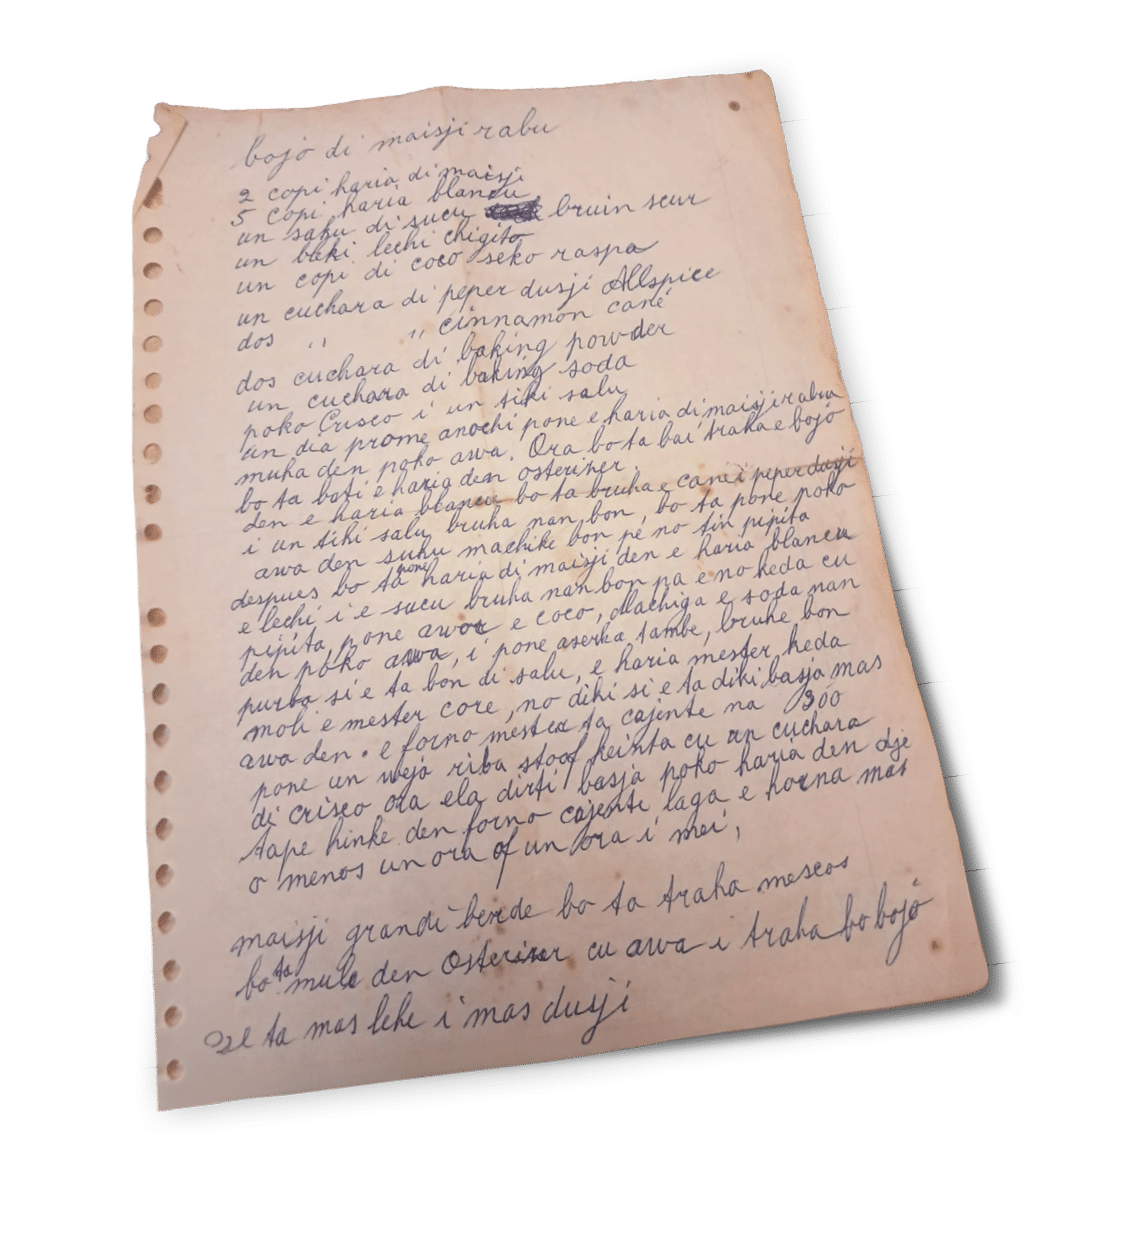 bojo di maisji rabu
2 copi haria di maisji
5 copi haria blancu
un saku di sucu bruin seur
un bleki lechi chigito
un copi di coco seko raspa
un cuchara di peper dusji Allspice
dos " " cinnamon cané
dos cuchara di baking powder
un cuchara di baking soda
poko Crisco i un tiki salu
un dia prome anochi pone e haria di maisji rabu
muha den poko awa. Ora bo ta bai traha e bojó
bo ta bati e haria den osterizer.
den e haria blancu bo ta bruha e cane i peper dusji
i un tiki salu bruha nan bon, bo ta pone poko
awa den suku machike bon pé no tin pipita
despues bo ta pone haria di maisji den e haria blancu
e lechi i e sucu bruha nan bon pa e no keda cu
pipita, pone awor e coco, Machiga e soda nan
den poko awa, i pone aserka tambe, bruhe bon
purba si e ta bon di salu, e haria mester keda
moli e mester core, no diki si e ta diki basja mas
awa den. e forno mester ta cajente na 300
pone un weja riba stoof keinta cu un cuchara
di crisco ora ela dirti basja poko haria den dje
tape hinke den forno cajente laga e horna mas
o menos un ora of un ora i mei,
maisji grandi berde bo ta traha mescos
bo ta mule den Osterizer cu awa i traha bo bojó
e ta mas lihe i mas dusji